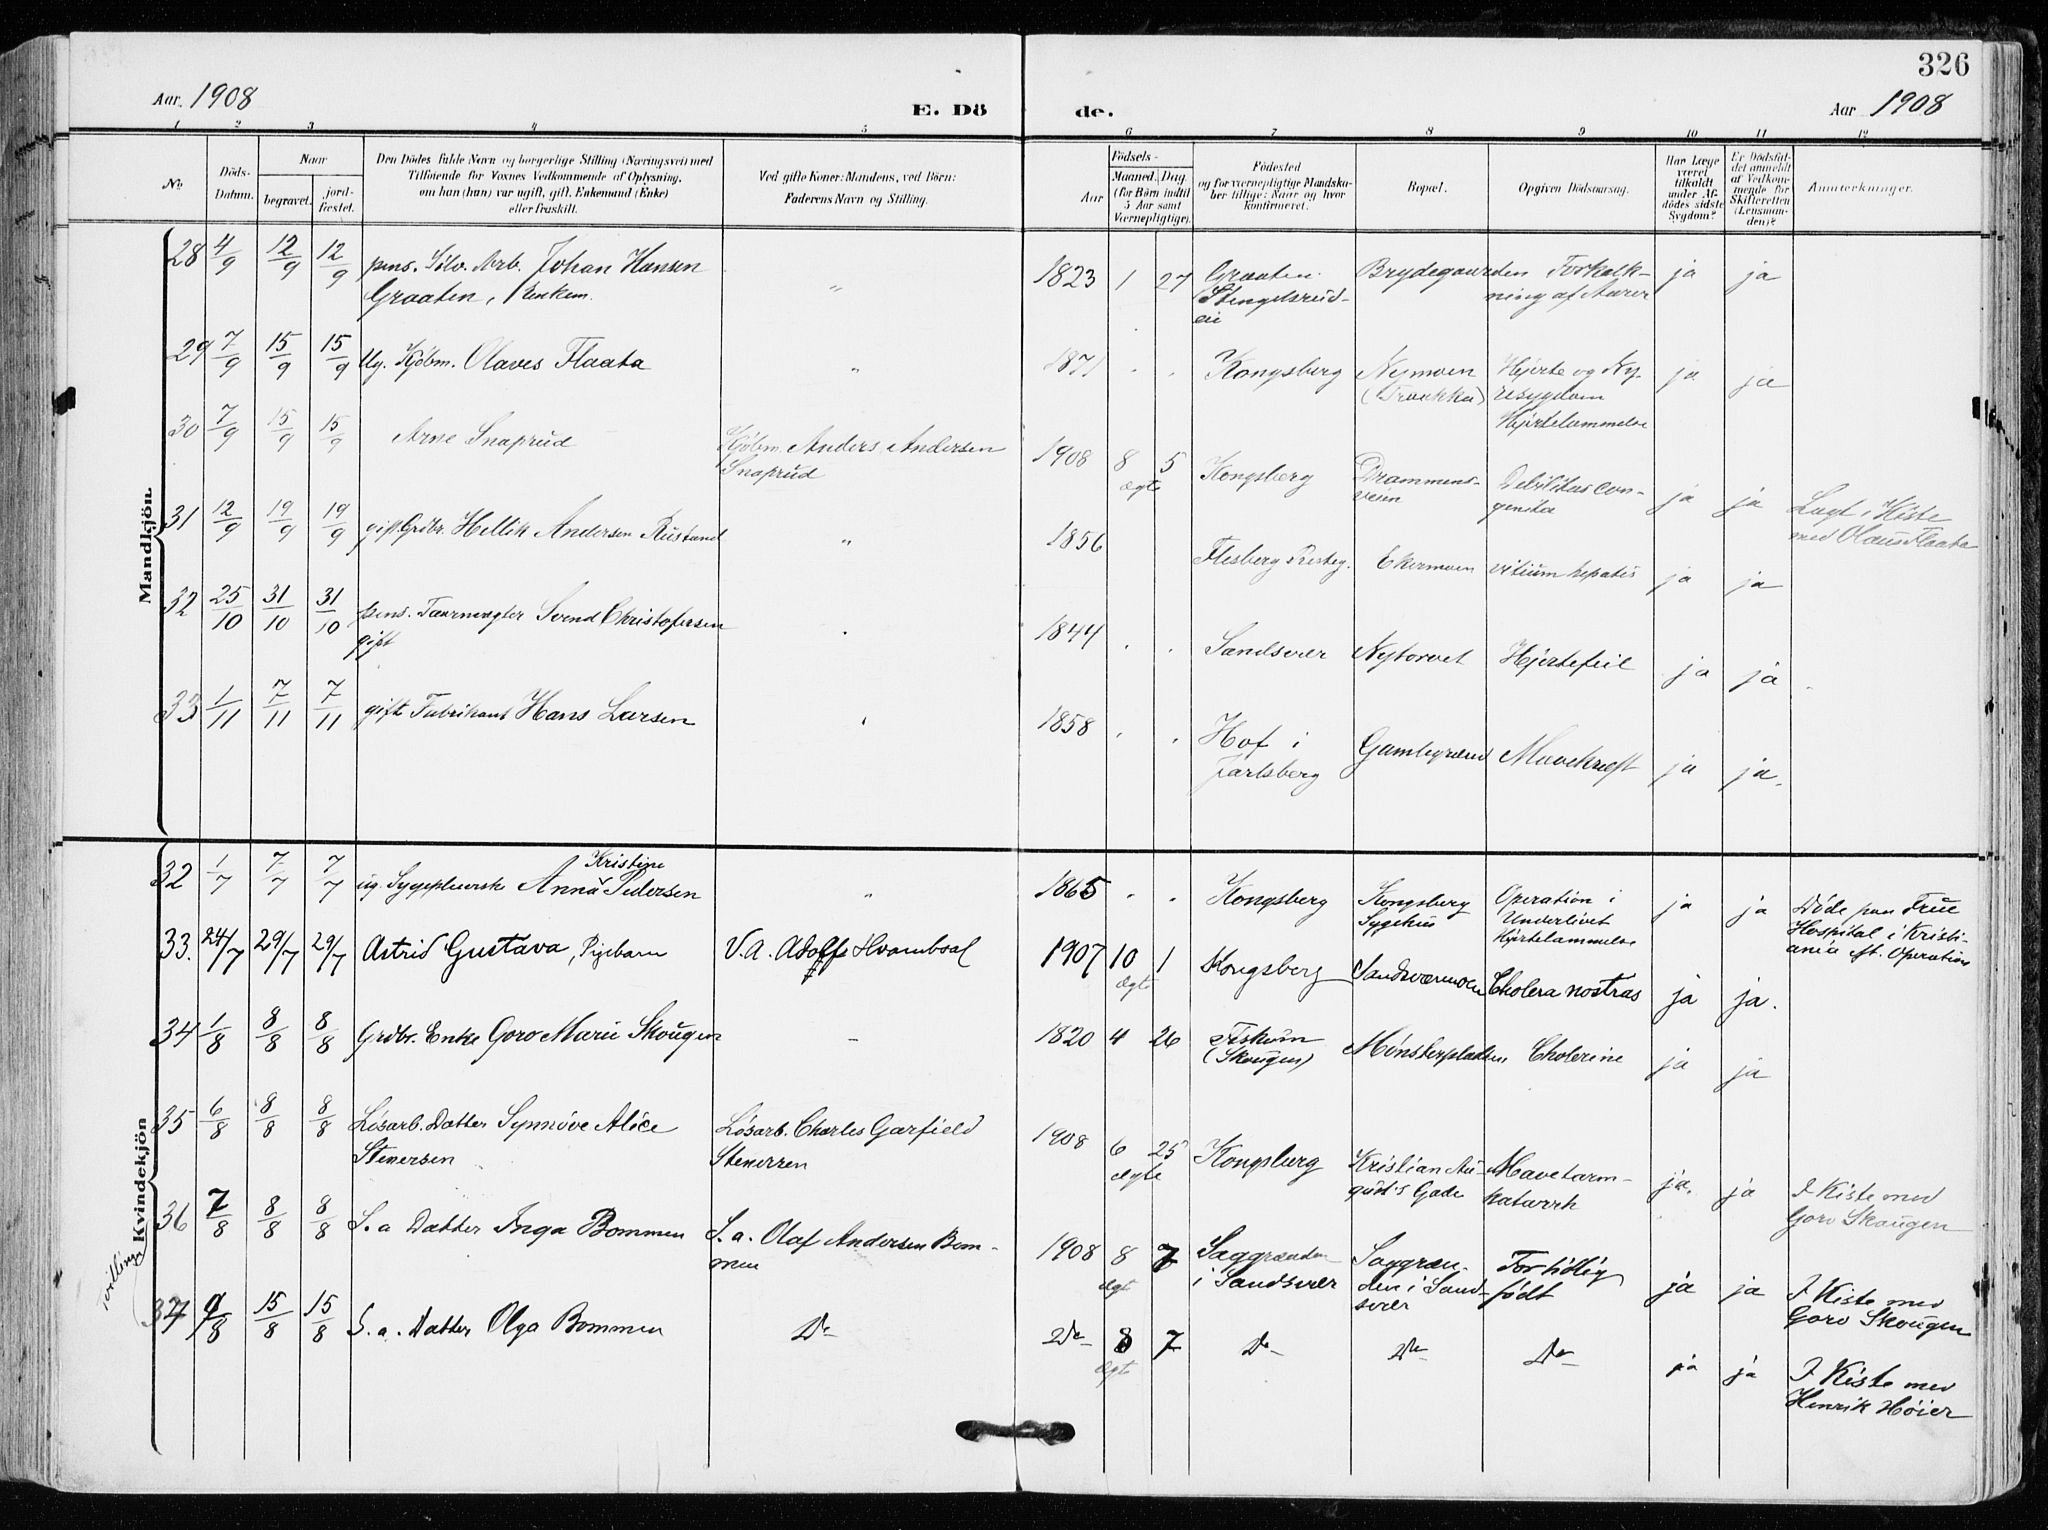 326
Aar. 1908
E. Dö
de.
Aar 1908
1 2 3 4 5 6 7 8 9 10 11 12
No.
Döds-
Datum.
Naar
begravet.
jord-
fæstet.
Den Dödes fulde Navn og borgerlige Stilling (Næringsvei) med
Tilföiende for Voxnes Vedkommende af Oplysning,
om han (hun) var ugift, gift, Enkemand (Enke)
eller fraskilt.
Ved gifte Koner: Mandens, ved Börn:
Faderens Navn og Stilling.
Födsels-
Aar
Maaned. Dag
(for Börn indtil
5 Aar samt
Værnepligtige).
Födested
og for værnepligtige Mandska-
ber tillige: Naar og hvor
konfirmeret.
Bopæl.
Opgiven Dödsaarsag.
Har Læge
været
tilkaldt
under Af-
dödes sidste
Sygdom?
Er Dödsfal-
det anmeldt
af Vedkom-
mende for
Skifteretten
(Lensman-
den)?
Anmærkninger.
Mandkjön.
28 4/9 12/9 12/9 pens. Sölv. Arb. Johan Hansen
Graaten, Enkem. " 1823 1 27 Graaten
Stengelsrud-
eie Brydegaarden Forkalk-
ning af Aarer ja ja
29 7/9 15/9 15/9 Ug. Kjöbm. Olaves Flaata " 1871 . . Kongsberg Nymoen
(Trækka) Hjerte og Ny-
resygdom
Hjertelammelse ja ja
30 7/9 15/9 15/9 Arne Snaprud Kjöbm. Anders Andersen
Snaprud 1908 8 5
ægte Kongsberg Drammens-
veien Debilitas con-
genita ja ja Lagt i Kiste
med Olaus Flaata
31 12/9 19/9 19/9 gift Grdbr. Hellik Andersen Rustand " 1856 Flesberg Presteg. Ekermoen vitium hepatis ja ja
32 25/10 31/10 31/10 pens. Taarnvægter Svend Christofersen
gift . 1844 . . Sandsvær Nytorvet Hjertefeil ja ja
33 1/11 7/11 7/11 gift Fabrikant Hans Larsen . 1858 . . Hof i
Jarlsberg Gamlegrænd Mavekræft ja ja.
Kvindekjön
32 1/7 7/7 7/7 ug. Sygepleierske Anna Kristine Pedersen " 1865 . . Kongsberg Kongsberg
Sygehus Operation i
Underlivet
Hjertelammelse ja ja Döde paa Frue
Hospital i Kristi-
ania eft. Operation
33. 24/7 29/7 29/7 Astrid Gustava, Pigebarn V. A. Adolf Hvambsal 1907 10 1
ægte Kongsberg Sandsværmoen Cholera nostras ja ja.
34 1/8 8/8 8/8 Grdbr. Enke Goro Marie Skougen – 1820 4 26 Fiskum
(Skougen) Mönsterpladsen Cholerine ja ja
35 6/8 8/8 8/8 Lösarb. Datter Synnöve Alice
Stenersen Lösarb. Charles Garfield
Stenersen 1908 6 25
ægte Kongsberg Kristian Au-
gust's Gade Mavetarm-
katarrh ja. ja I Kiste med
Goro Skougen
36 7/8 8/8 8/8 S. a Datter Inga Bommen S. a. Olaf Andersen Bom-
men 1908 8 7
ægt Saggrænden
i Sandsvær Saggræn-
den i Sand-
svær For tidlig
födt ja ja I Kiste med
Goro Skougen
Tvillinger
37 9/8 15/8 15/8 S. a. Datter Olga Bommen Do Do 8 7
ægt Do Do Do ja ja I Kiste med
Henrik Höier